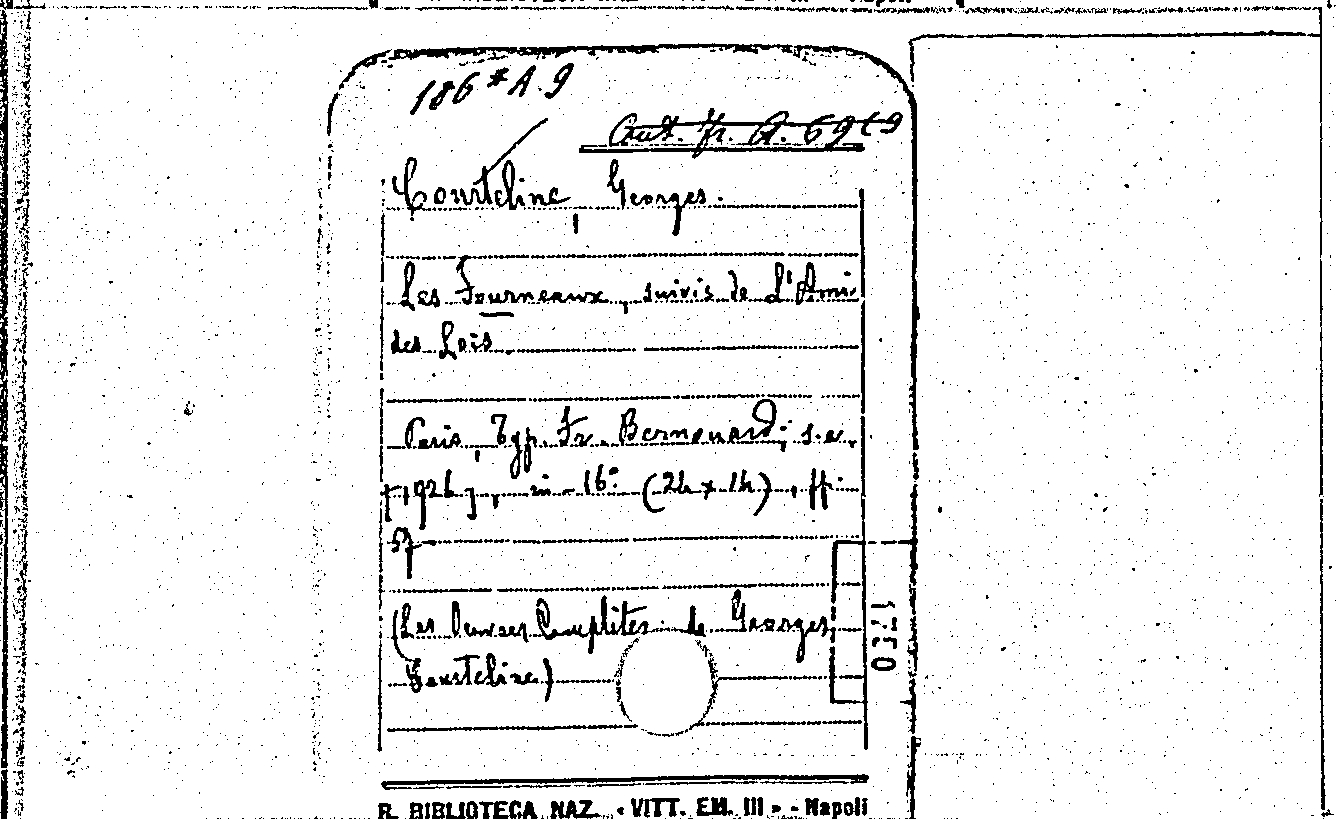 186*A.9
Aut. fr. A. 69
Courteline, Georges.
Les Fourneaux, suivis de L'Ami
des Lois.
Paris, Typ. Fr. Bernouard, s.a.
[1926], in-16° (24 x 14), ff.
57
(Les Œuvres Complètes de Georges
Courteline)
R. BIBLIOTECA NAZ. « VITT. EM. III » - Napoli